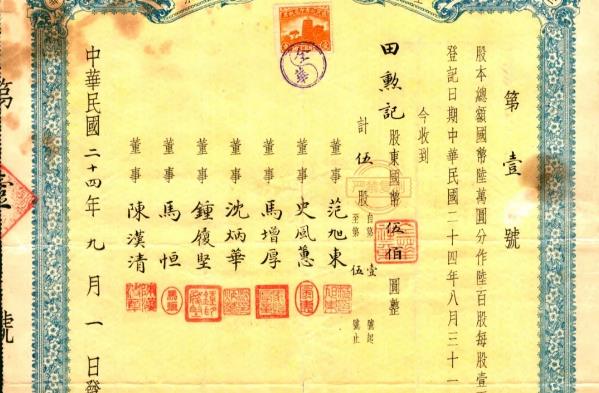 第壹號
股本總額國幣陸萬圓分作陸百股每股壹
登記日期中華民國二十四年八月三十一
今收到
田勲記股東國幣伍佰圓整
計伍股自第壹號起
至第伍號止
董事范旭東
董事史風蕙
董事馬增厚
董事沈炳華
董事鍾履堅
董事馬恒
董事陳漢清
中華民國二十四年九月一日發
第壹號